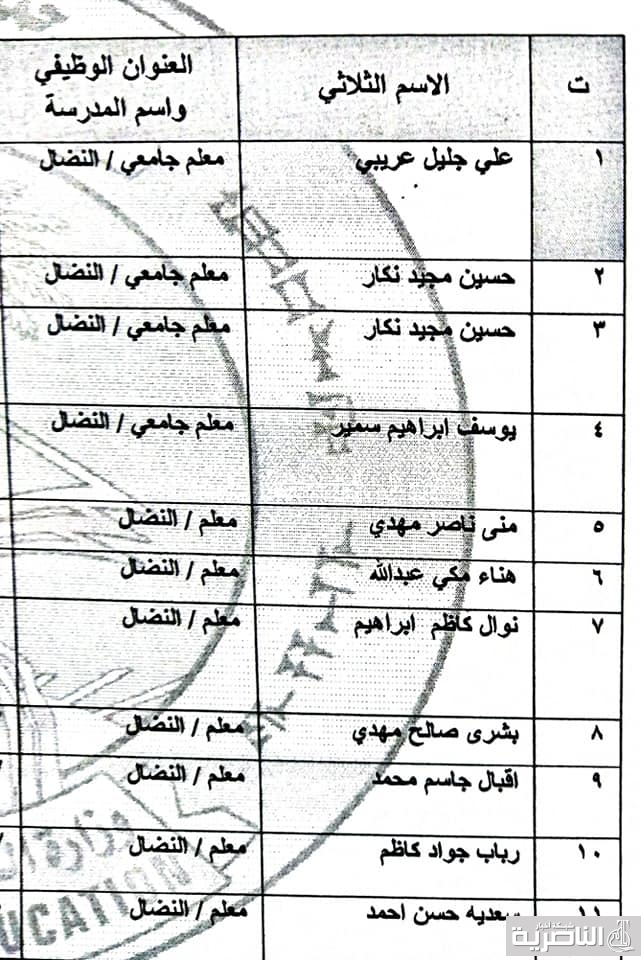 ت الاسم الثلاثي العنوان الوظيفي
واسم المدرسة
١ علي جليل عريبي معلم جامعي / النضال
٢ حسين مجيد نكار معلم جامعي / النضال
٣ حسين مجيد نكار معلم جامعي / النضال
٤ يوسف ابراهيم سمير معلم جامعي / النضال
٥ منى ناصر مهدي معلم / النضال
٦ هناء مكي عبدالله معلم / النضال
٧ نوال كاظم ابراهيم معلم / النضال
٨ بشرى صالح مهدي معلم / النضال
٩ اقبال جاسم محمد معلم / النضال
١٠ رباب جواد كاظم معلم / النضال
وزارة
١١ سعديه حسن احمد معلم / النضال
UCATION
الناصرية